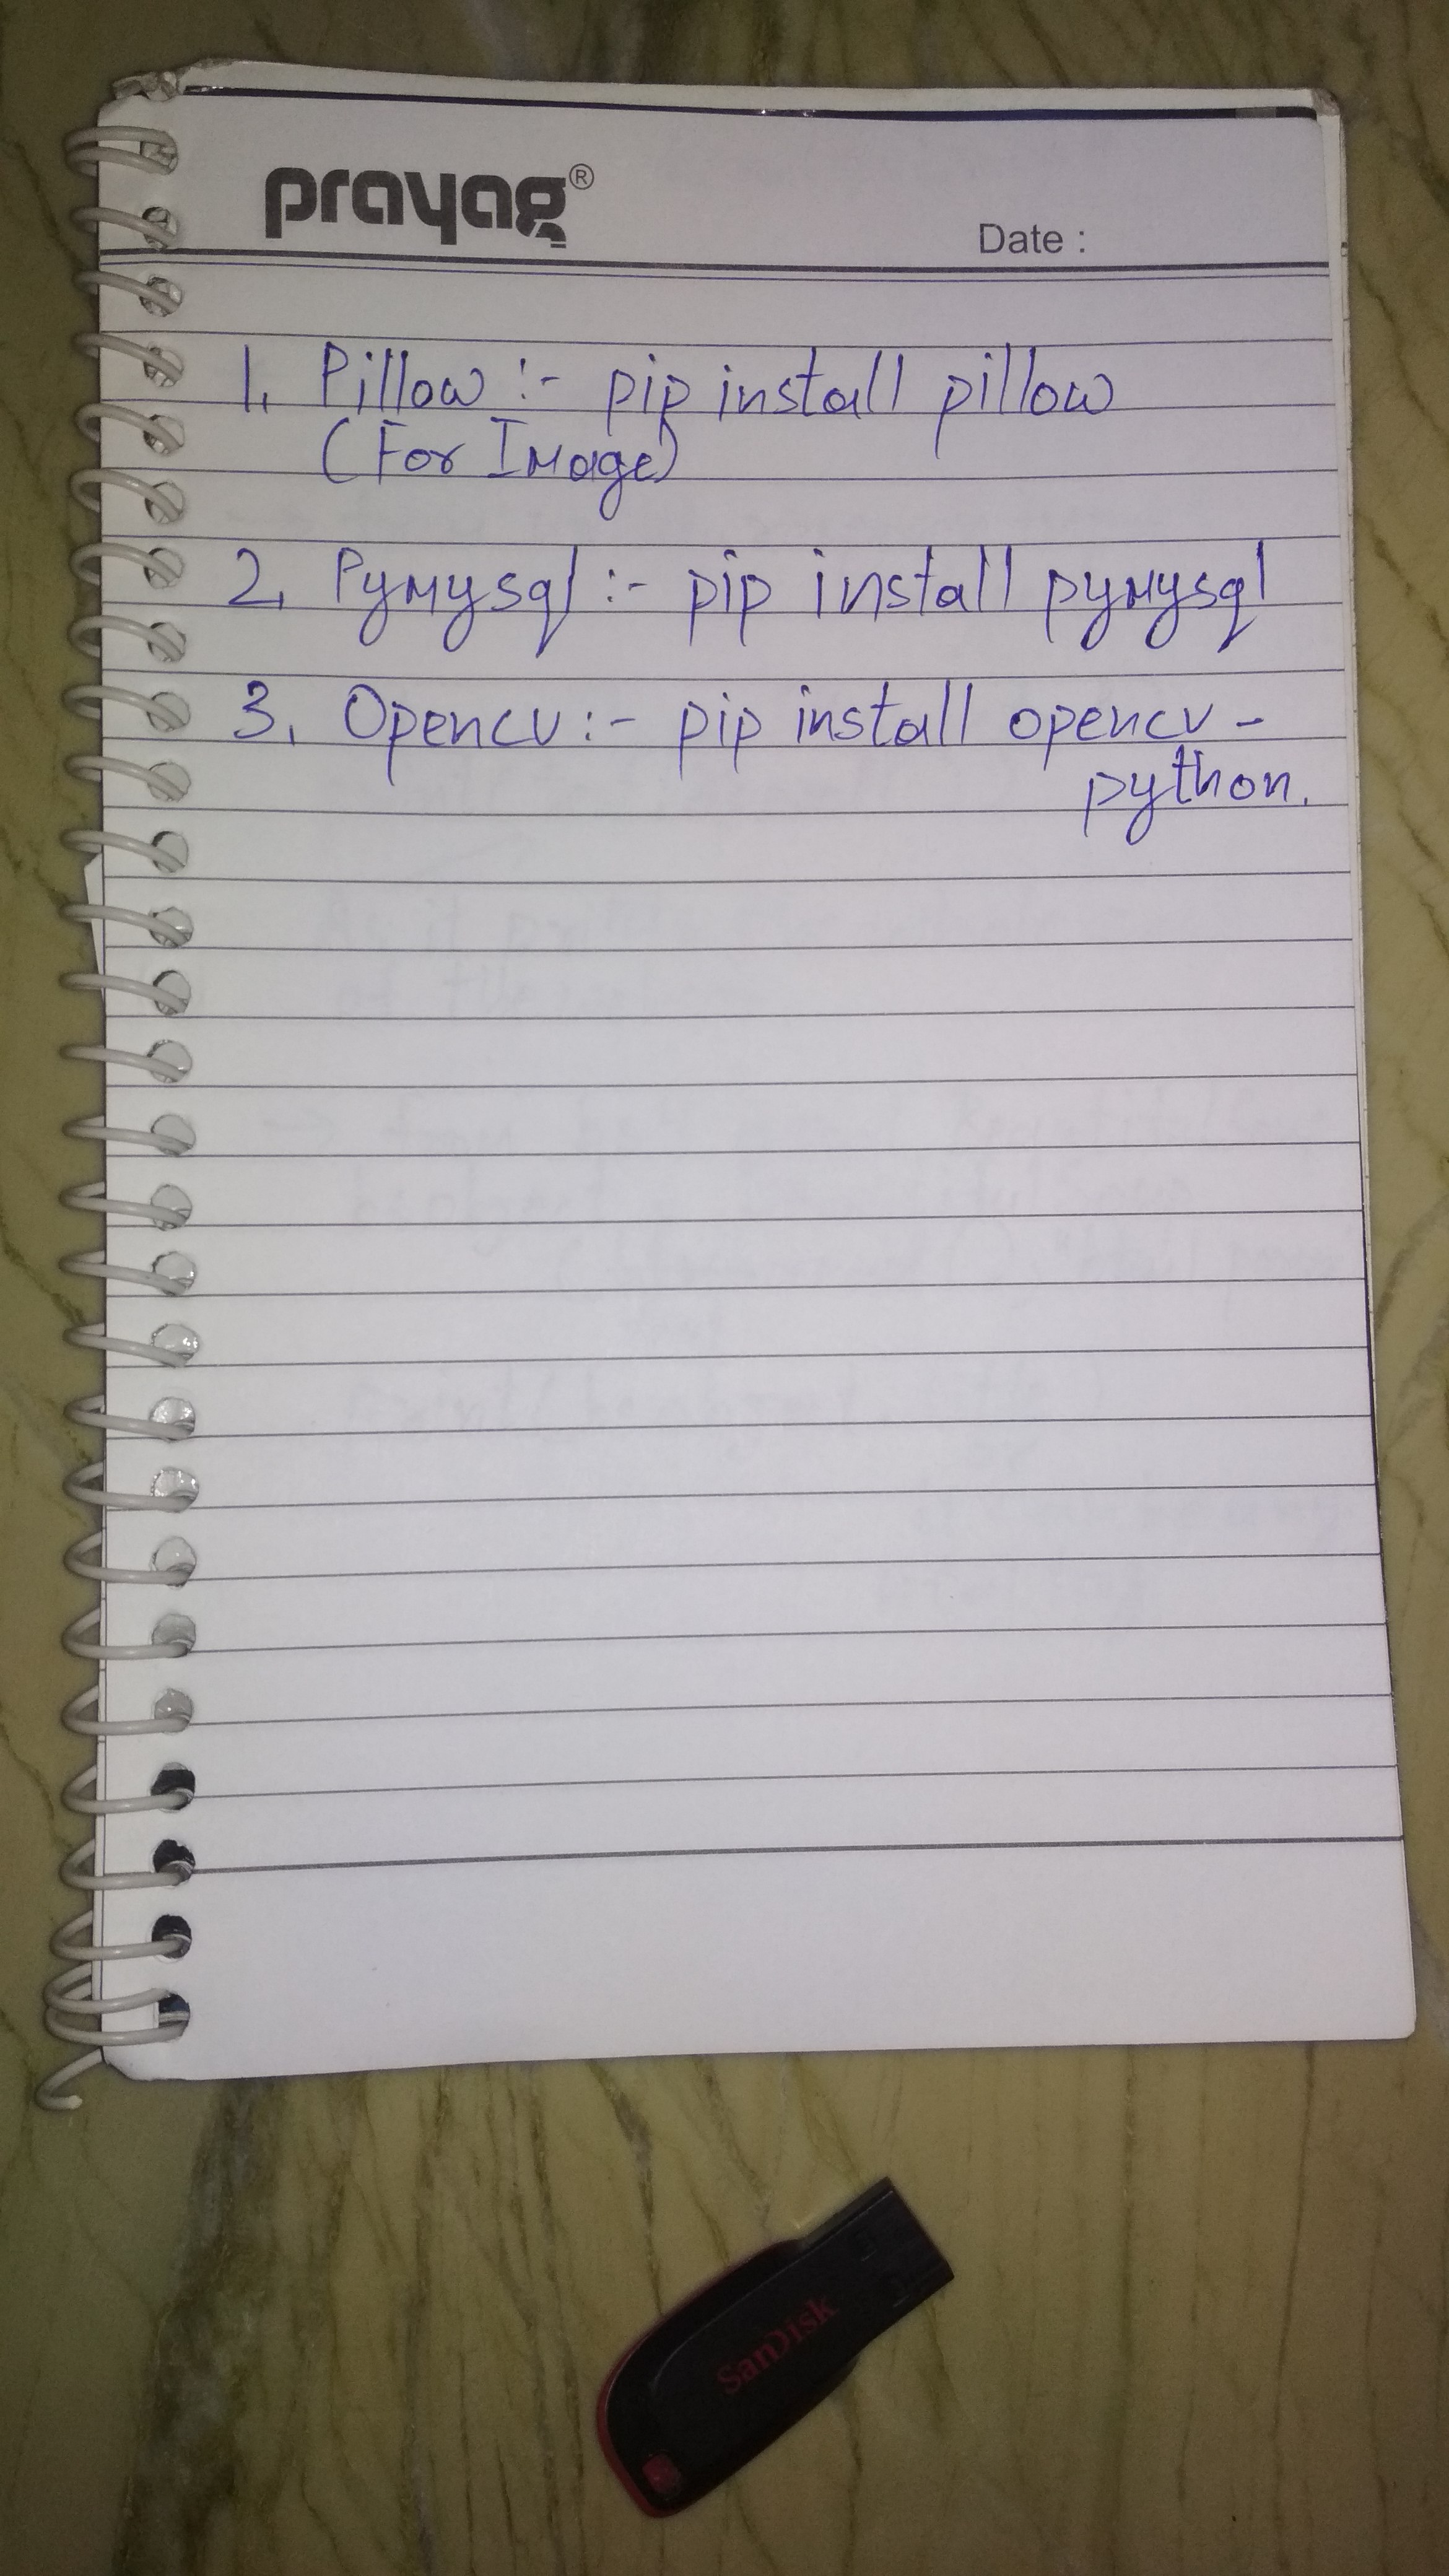 prayag®
Date :
1. Pillow :- pip install pillow
(For Image)
2. Pymysql :- pip install pymysql
3. Opencv :- pip install opencv -
python.
SanDisk